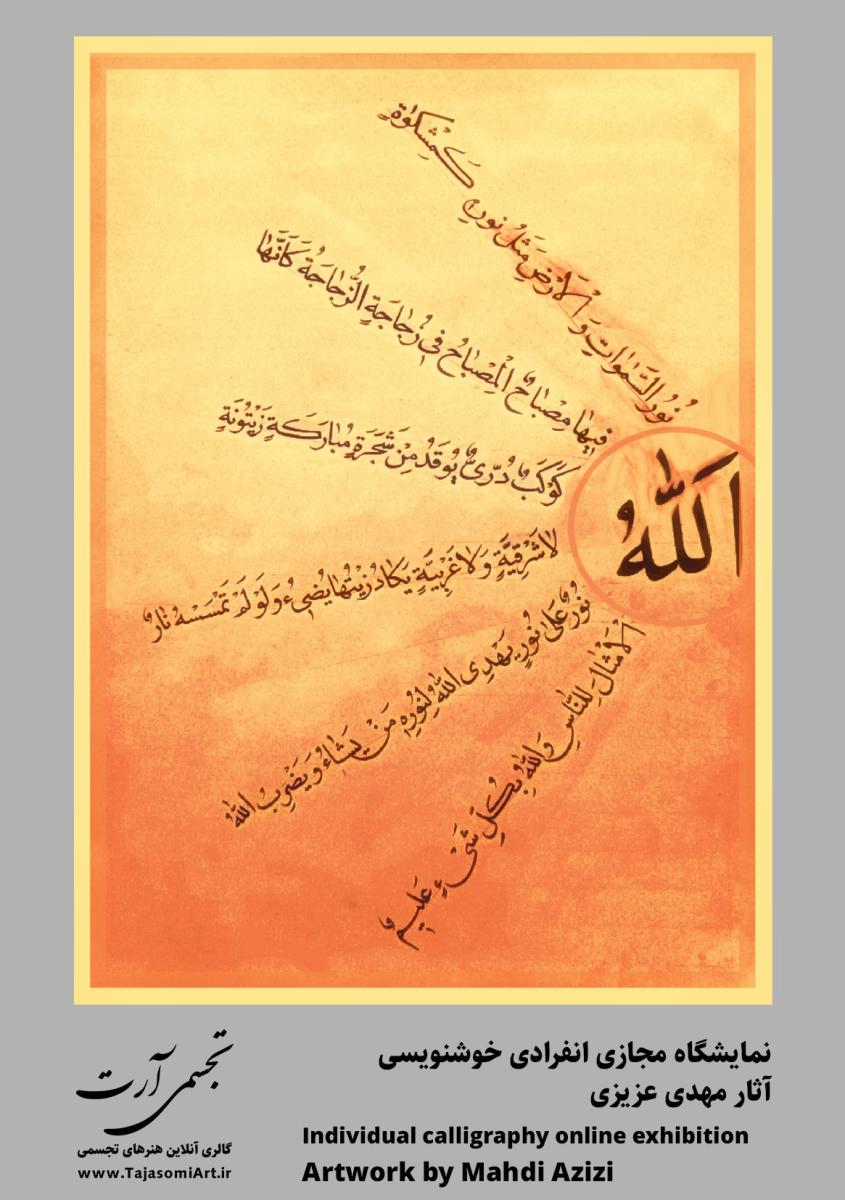 ٱللّٰهُ
نُورُ السَّمٰوٰاتِ وَ الْاَرْضِ مَثَلُ نورِهِ كَمِشْكوٰةٍ
فيهٰا مِصْبٰاحٌ الْمِصْبٰاحُ فى زُجٰاجَةٍ الزُّجٰاجَةُ كَأَنَّهٰا
كَوْكَبٌ دُرِّىٌّ يُوقَدُ مِنْ شَجَرَةٍ مُبٰارَكَةٍ زَيْتُونَةٍ
لٰا شَرْقِيَّةٍ وَلٰا غَرْبِيَّةٍ يَكٰادُ زَيْتُهٰا يُضىٓءُ وَلَوْ لَمْ تَمْسَسْهُ نٰارٌ
نُورٌ عَلىٰ نُورٍ يَهْدِى اللّٰهُ لِنُورِهِ مَنْ يَشٰاءُ وَ يَضْرِبُ اللّٰهُ
الْاَمْثٰالَ لِلنّٰاسِ وَاللّٰهُ بِكُلِّ شَىْءٍ عَليمٌ
نمایشگاه مجازی انفرادی خوشنویسی
آثار مهدی عزیزی
Individual calligraphy online exhibition
Artwork by Mahdi Azizi
تجسمی آرت
گالری آنلاین هنرهای تجسمی
www.TajasomiArt.ir